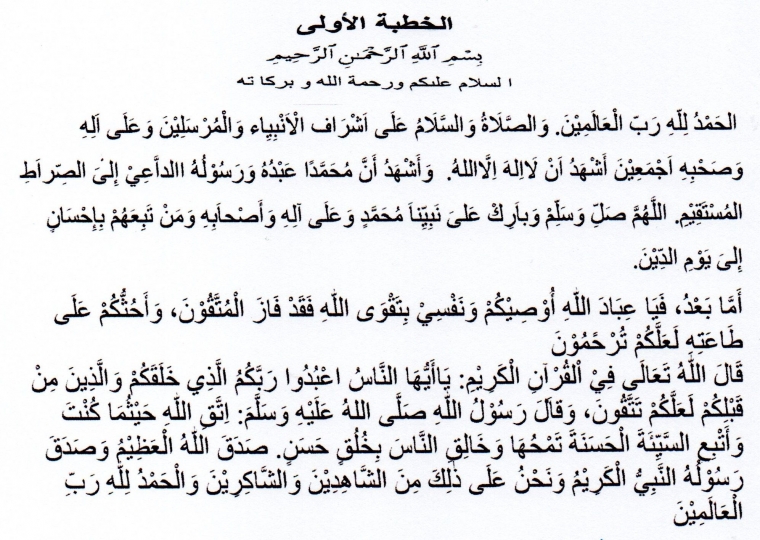 الخطبة الأولى
بِسْمِ ٱللَّهِ ٱلرَّحْمَٰنِ ٱلرَّحِيمِ
السلام عليكم ورحمة الله و بركاته
الحَمْدُ لِلّٰهِ رَبّ الْعَالَمِيْنَ. وَالصَّلَاةُ وَالسَّلَامُ عَلَى اَشْرَافِ الْاَنْبِيِاء وَالْمُرْسَلِيْنَ وَعَلَى اَلِهِ
وَصَحْبِهِ اَجْمَعِيْنَ أَشْهَدُ اَنْ لَااِلهَ اِلَّااللهُ. وَأَشْهَدُ أَنَّ مُحَمَّدًا عَبْدُهُ وَرَسُوْلُهُ االدأَعِيْ إِلىَ الصِّراَطِ
المُسْتَقِيْمِ. اللَّهُمَّ صَلِّ وَسَلِّمْ وَباَرِكْ عَلىَ نَبِيِّناَ مُحَمَّدٍ وَعَلَى آلِهِ وَأَصْحاَبِهِ وَمَنْ تَبِعَهُمْ بِإِحْسَانٍ
إِلىَ يَوْمِ الدِّيْنَ.
أَمَّا بَعْدُ، فَيَا عِبَادَ اللّٰهِ أُوْصِيْكُمْ وَنَفْسِيْ بِتَقْوَى اللّٰهِ فَقَدْ فَازَ الْمُتَّقُوْنَ، وَأَحُثُّكُمْ عَلَى
طَاعَتِهِ لَعَلَّكُمْ تُرْحَمُوْنَ
قَالَ اللّٰهُ تَعَالَى فِيْ اْلقُرْآنِ الْكَرِيْمِ: يَاأَيُّهَا النَّاسُ اعْبُدُوا رَبَّكُمُ الَّذِي خَلَقَكُمْ وَالَّذِينَ مِنْ
قَبْلِكُمْ لَعَلَّكُمْ تَتَّقُونَ، وَقاَلَ رَسُوْلُ اللّٰهِ صَلَّى اللهُ عَلَيْهِ وَسَلَّمَ: اِتَّقِ اللّٰهِ حَيْثُمَا كُنْتَ
وَأَتْبِعِ السَّيِّئَةَ الْحَسَنَةَ تَمْحُهَا وَخَالِقِ النَّاسَ بِخُلُقٍ حَسَنٍ. صَدَقَ اللّٰهُ الْعَظِيْمُ وَصَدَقَ
رَسُوْلُهُ النَّبِيُّ الْكَرِيْمُ وَنَحْنُ عَلَى ذٰلِكَ مِنَ الشَّاهِدِيْنَ وَالشَّاكِرِيْنَ وَالْحَمْدُ لِلّٰهِ رَبِّ
الْعَالَمِيْنَ